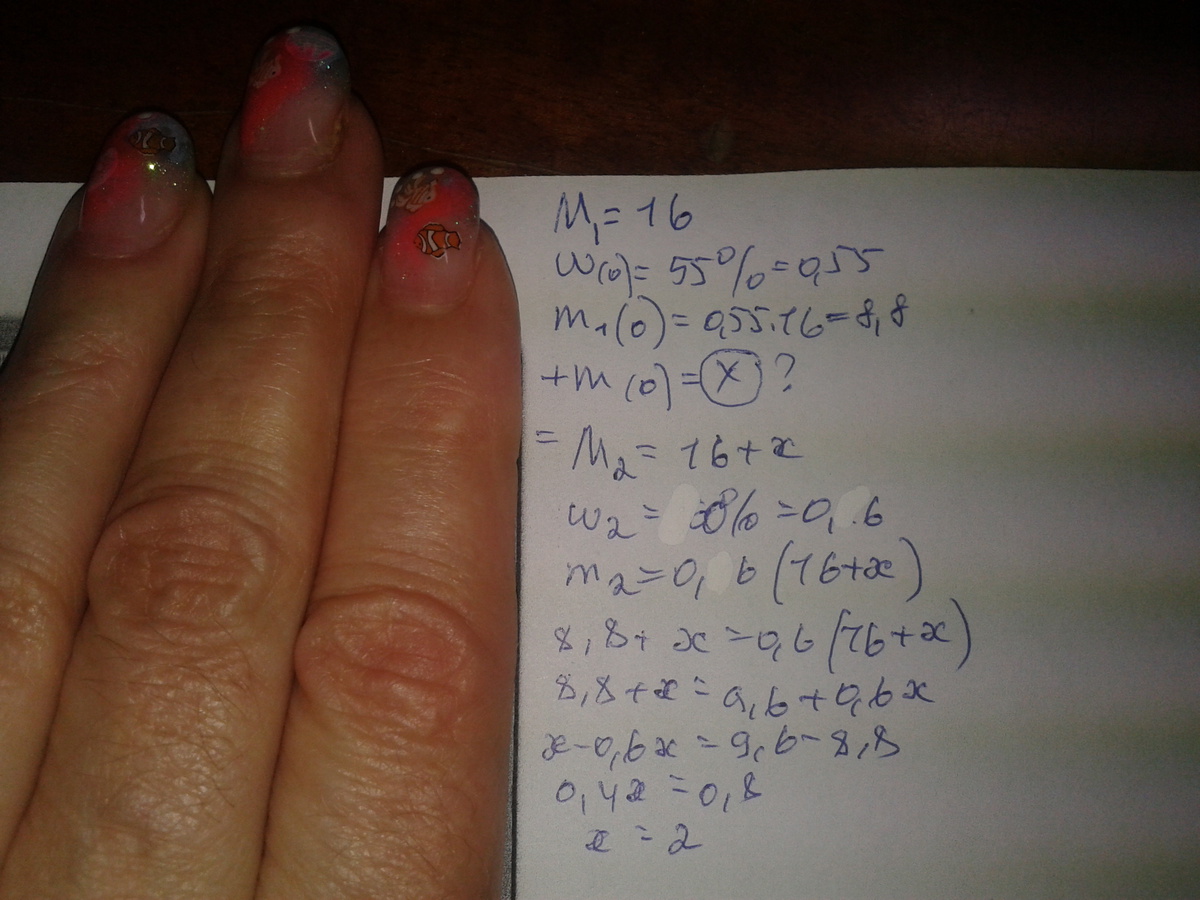 M₁ = 16
ω(o) = 55% = 0,55
m₁(o) = 0,55.16 = 8,8
+m(o) = x ?
= M₂ = 16 + x
ω₂ = 0% = 0, 6
m₂ = 0, 6 (16+x)
8,8 + x = 0,6 (16 + x)
8,8 + x = 9,6 + 0,6x
x - 0,6x = 9,6 - 8,8
0,4x = 0,8
x = 2